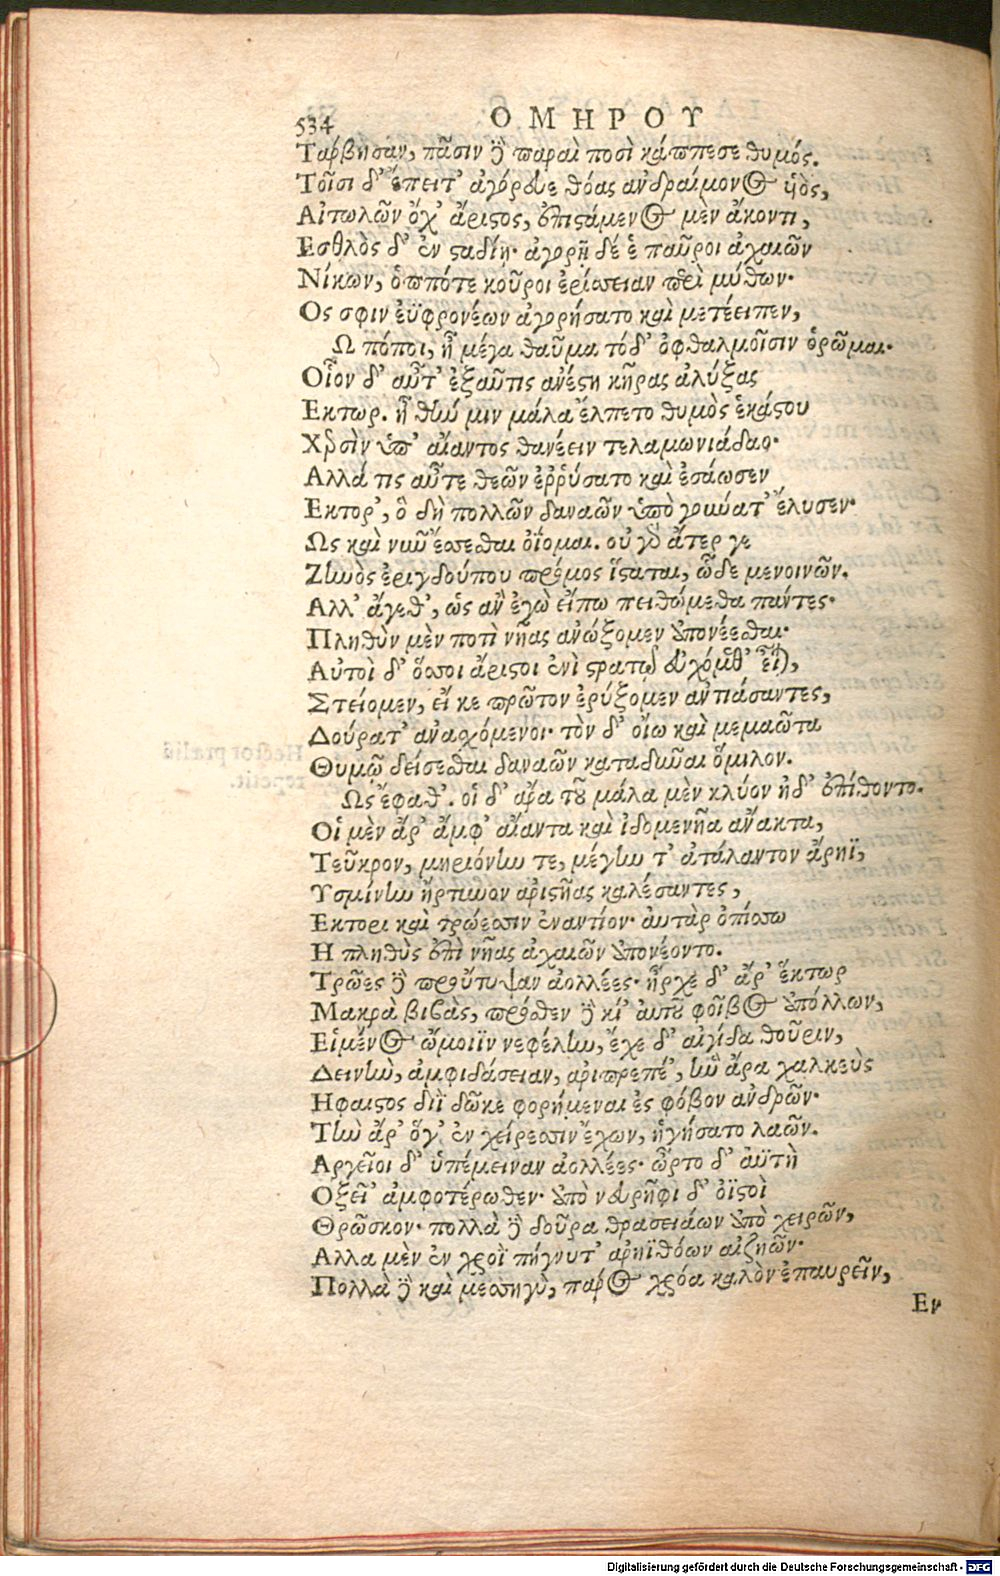 534 ΟΜΗΡΟΥ
Ταρβησαν, πᾶσιν ἢ παραὶ ποσὶ κάππεσε θυμός.
Τοῖσι δ' ἔπειτ' ἀγόρευε θόας ἀνδραίμονος ἡὸς,
Αἰτωλῶν ὄχ' ἄριστος, ἐπιστάμενος μὲν ἄκοντι,
Εσθλὸς δ' ἐν σταδίῃ· ἀγορῇ δέ ἑ παῦροι ἀχαιῶν
Νίκων, ὁππότε κοῦροι ἐρίσσειαν περὶ μύθων·
Ος σφιν ἐϋφρονέων ἀγορήσατο καὶ μετέειπεν,
Ω πόποι, ἦ μέγα θαῦμα τόδ' ὀφθαλμοῖσιν ὁρῶμαι.
Οἷον δ' αὖτ' ἐξαῦτις ἀνέστη κῆρας ἀλύξας
Εκτωρ. ἦ θήν μιν μάλα ἔλπετο θυμὸς ἑκάστου
Χερσὶν ὑπ' αἴαντος θανέειν τελαμωνιάδαο·
Αλλά τις αὖτε θεῶν ἐῤῥύσατο καὶ ἐσάωσεν
Εκτορ', ὃ δὴ πολλῶν δαναῶν ὑπὸ γούνατ' ἔλυσεν·
Ως καὶ νῦν ἔσσεσθαι ὀΐομαι. οὐ γὰρ ἄτερ γε
Ζηνὸς ἐριγδούπου πρόμος ἵσταται, ὧδε μενοινῶν.
Αλλ' ἄγεθ', ὡς ἂν ἐγὼ εἴπω πειθώμεθα πάντες·
Πληθὺν μὲν ποτὶ νῆας ἀνώξομεν ἀπονέεσθαι·
Αὐτοὶ δ' ὅσσοι ἄριστοι ἐνὶ στρατῷ εὐχόμεθ' εἶναι,
Στείομεν, εἴ κε πρῶτον ἐρύξομεν ἀντιάσαντες,
Δούρατ' ἀνασχόμενοι· τὸν δ' οἴω καὶ μεμαῶτα
Θυμῷ δείσεσθαι δαναῶν καταδῦναι ὅμιλον.
Ως ἔφαθ'. οἱ δ' ἄρα τοῦ μάλα μὲν κλύον ἠδ' ἐπίθοντο.
Οἱ μὲν ἄρ' ἀμφ' αἴαντα καὶ ἰδομενῆα ἄνακτα,
Τεῦκρον, μηριόνην τε, μέγην τ' ἀτάλαντον ἄρηϊ,
Υσμίνην ἤρτυνον ἀριστῆας καλέσαντες,
Εκτορι καὶ τρώεσσιν ἐναντίον· αὐτὰρ ὀπίσσω
Η πληθὺς ἐπὶ νῆας ἀχαιῶν ἀπονέοντο.
Τρῶες ἢ προὔτυψαν ἀολλέες· ἦρχε δ' ἄρ' ἕκτωρ
Μακρὰ βιβὰς, πρόσθεν ἢ κί' αὐτοῦ φοῖβος ἀπόλλων,
Εἱμένος ὤμοιϊν νεφέλην, ἔχε δ' αἰγίδα θοῦριν,
Δεινὴν, ἀμφιδάσειαν, ἀριπρεπέ', ἣν ἄρα χαλκεὺς
Ηφαιστος διῒ δῶκε φορήμεναι ἐς φόβον ἀνδρῶν·
Τὴν ἄρ' ὅγ' ἐν χείρεσσιν ἔχων, ἡγήσατο λαῶν.
Αργεῖοι δ' ὑπέμειναν ἀολλέες· ὦρτο δ' ἀϋτὴ
Οξεῖ' ἀμφοτέρωθεν· ἀπὸ νευρῆφι δ' ὀϊστοὶ
Θρῶσκον· πολλὰ ἢ δοῦρα θρασειάων ἀπὸ χειρῶν,
Αλλα μὲν ἐν χροῒ πήγνυτ' ἀρηϊθόων αἰζηῶν·
Πολλὰ ἢ καὶ μεσσηγὺ, πάρος χρόα καλὸν ἐπαυρεῖν,
Εν
Digitalisierung gefördert durch die Deutsche Forschungsgemeinschaft - DFG